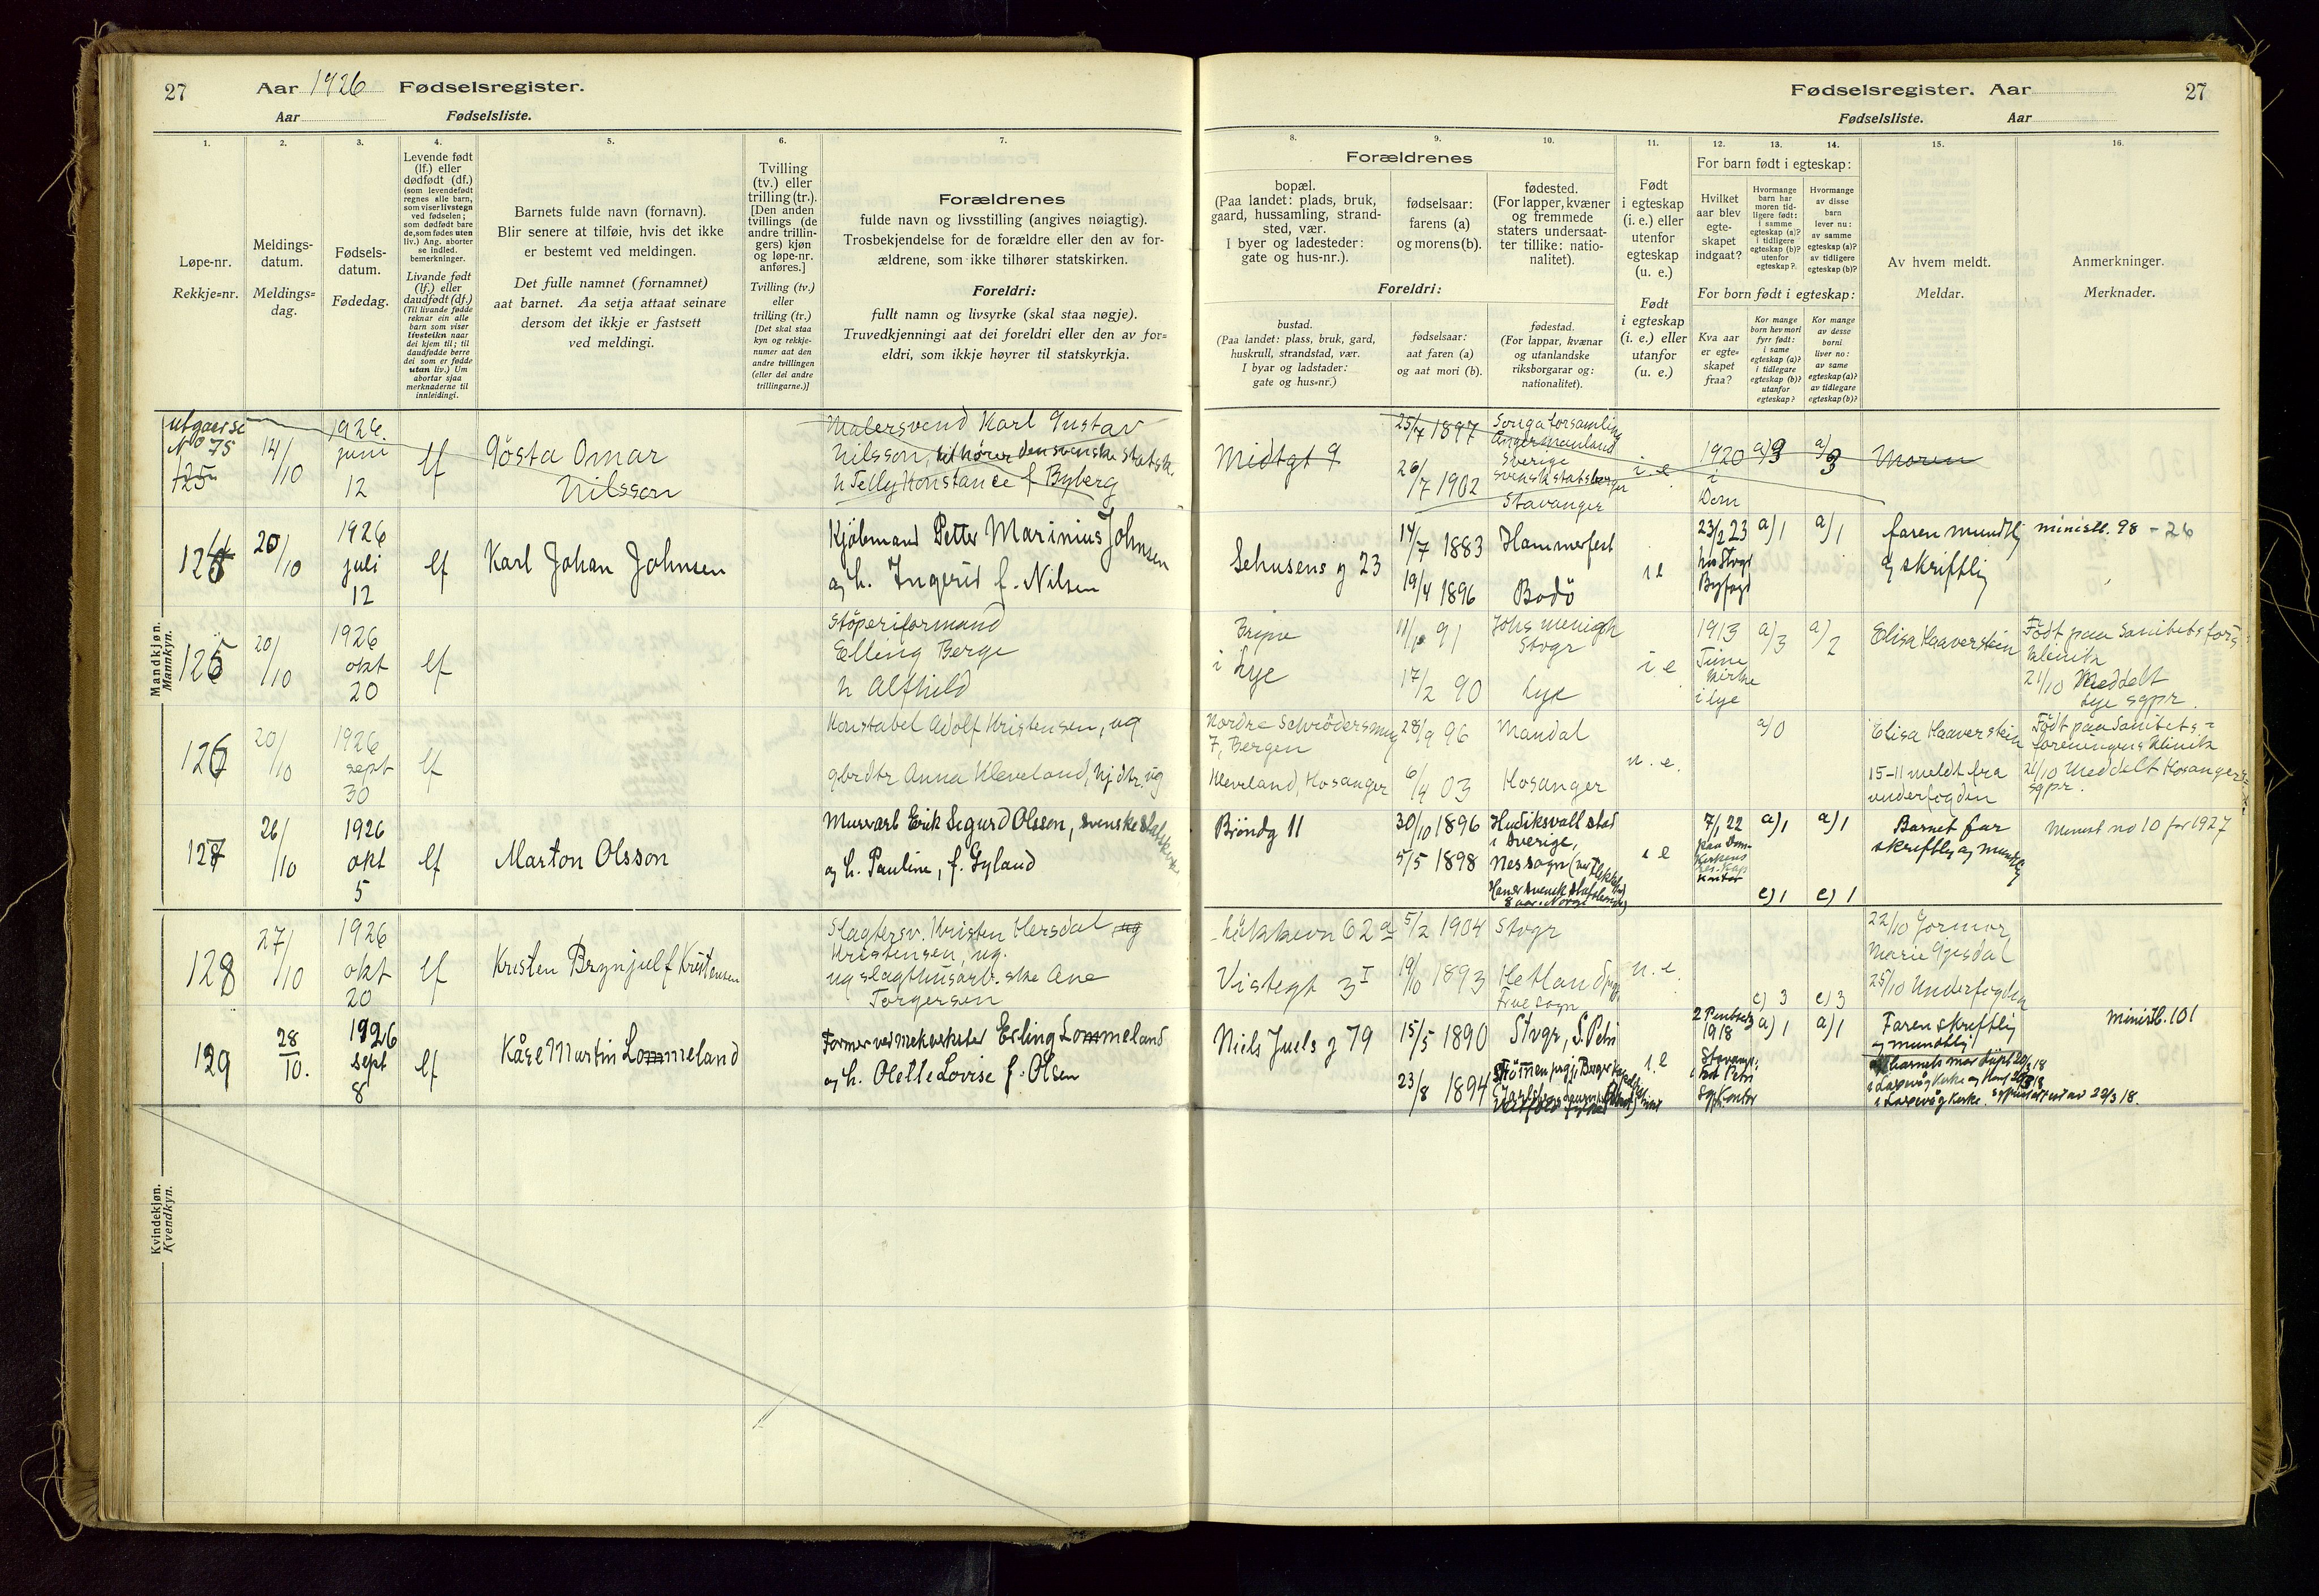 27 Aar 1926 Fødselsregister.
Aar Fødselsliste.
1. 2. 3. 4. 5. 6. 7.
Løpe-nr.
Rekkje=nr.
Meldings-
datum.
Meldings=
dag.
Fødsels-
datum.
Fødedag.
Levende født
(lf.) eller
dødfødt (df.)
(som levendefødt
regnes alle barn,
som viser livstegn
ved fødselen;
som dødfødt bare
de, som fødes uten
liv.) Ang. aborter
se indled.
bemerkninger.
Livande født
(lf.) eller
daudfødt (df.)
(Til livande fødde
reknar ein alle
born som viser
livsteikn naar
dei kjem til; til
daudfødde berre
dei som er fødde
utan liv.) Um
abortar sjaa
merknaderne til
innleidingi.
Barnets fulde navn (fornavn).
Blir senere at tilføie, hvis det ikke
er bestemt ved meldingen.
Det fulle namnet (fornamnet)
aat barnet. Aa setja attaat seinare
dersom det ikkje er fastsett
ved meldingi.
Tvilling
(tv.) eller
trilling (tr.).
[Den anden
tvillings (de
andre trillin-
gers) kjøn
og løpe-nr.
anføres.]
Tvilling (tv.)
eller
trilling (tr.)
[Det skal staa
kyn og rekkje-
numer aat den
andre tvillingen
(eller dei andre
trillingarne.)]
Forældrenes
fulde navn og livsstilling (angives nøiagtig).
Trosbekjendelse for de forældre eller den av for-
ældrene, som ikke tilhører statskirken.
Foreldri:
fullt namn og livsyrke (skal staa nøgje).
Truvedkjenningi aat dei foreldri eller den av for-
eldri, som ikkje høyrer til statskyrkja.
Mandkjøn.
Mannkyn.
Kvindekjøn.
Kvendkyn.
utgaar se
No 75
125
14/10
1926.
juni
12
lf
Gösta Omar
Nilsson
Malersvend Karl Gustav
Nilsson, tilhører den svenske statsk.
h Telly Konstance f Byberg
124
20/10
1926
juli
12
lf
Karl Johan Johnsen
Kjøbmand Petter Marinius Johnsen
og h. Ingerid f. Nilsen
125
20/10
1926
okt
20
lf
Støperiformand
Elling Berge
h Alfhild
126
20/10
1926
sept
30
lf
Konstabel Adolf Kristensen, ug
gbrdtr Anna Kleveland, hjdtr. ug
127
26/10
1926
okt
5
lf
Marton Olsson
Murarb Erik Sigurd Olsson, svenske statskirke
og h. Pauline, f. Gyland
128
27/10
1926
okt
20
lf
Kristen Brynjulf Kristensen
Slagtersv. Kristen Hersdal ug
Kristensen, ug.
og slagthusarb.ske Ane
Torgersen
129
28/10.
1926
sept
8
lf
Kåre Martin Lommeland
Former ved mek verksted Erling Lommeland
og h. Olette Lovise f. Olsen
Fødselsregister. Aar 27
Fødselsliste. Aar
8. 9. 10. 11. 12. 13. 14. 15. 16.
Forældrenes
bopæl.
(Paa landet: plads, bruk,
gaard, hussamling, strand-
sted, vær.
I byer og ladesteder:
gate og hus-nr.).
fødselsaar:
farens (a)
og morens (b).
fødested.
(For lapper, kvæner
og fremmede
staters undersaat-
ter tillike: natio-
nalitet).
Foreldri:
bustad.
(Paa landet: plass, bruk, gard,
huskrull, strandstad, vær.
I byar og ladstader:
gate og hus=nr.)
fødselsaar:
aat faren (a)
og aat mori (b).
fødestad.
(For lappar, kvænar
og utanlandske
riksborgarar og:
nationalitet).
Født
i egteskap
(i. e.) eller
utenfor
egteskap
(u. e.)
Født
i egteskap
(i. e.) eller
utanfor
(u. e.)
For barn født i egteskap:
Hvilket
aar blev
egte-
skapet
indgaat?
Hvormange
barn har
moren tid-
ligere født:
i samme
egteskap (a)?
i tidligere
egteskap (b)?
utenfor
egteskap?
Hvormange
av disse
barn
lever nu:
av samme
egteskap (a)?
av tidligere
egteskap (b)?
For born født i egteskap:
Kva aar
er egte=
skapet
fraa?
Kor mange
born hev mori
fyrr født:
i same
egteskap (a)?
i tidlegare
egteskap (b)?
utanfor
egteskap?
Kor mange
av desse
borni
liver no:
av same
egteskap (a)?
av tidlegare
egteskap (b)?
Av hvem meldt.
Meldar.
Anmerkninger.
Merknader.
Midtgt 9
25/7 1897
26/7 1902
Ångermanland
Sverige
svensk statsborger
Stavanger
i. e.
1920
i
Dom
a/3
a/3
Moren
Sehusens g 23
14/7 1883
19/4 1896
Hammerfest
Bodø
i e
23/2 23
hos Stvgr
Byfogd
a/1
a/1
faren mundtlig
og skriftlig
ministb. 98 - 26
Bryne
i Lye
91
17/2 90
Johs menigh
Stvgr
Lye
i e
1913
Time
kirke
i Lye
a/3
a/2
Elisa Haaverstein
Født paa Sanitetsfors
klinik
21/10 Meddelt
Lye sgpr.
Nordre Schrödersmug
7, Bergen
Kleveland, Hosanger
28/9 96
6/4 03
Mandal
Hosanger
u. e.
a/0
Elisa Haaverstein
15-11 meldt fra
underfogden
Født paa Sanitets=
foreningens Klinik
21/10 Meddelt Hosanger
sgpr.
Brøndg 11
30/10 1896
5/5 1898
Hudiksvall stad
i Sverige,
Nes sogn
i e
7/1 22
paa Dom-
kirkens
kontor
a) 1
a) 1
c) 1
c) 1
Barnets far
skriftlig og mundtlig
Minist no 10 for 1927
Løkkevn 62 a
Vistegt 3 I
5/2 1904
19/10 1893
Stvgr
Hetland
Frue sogn
u. e.
c) 3
c) 3
22/10 Jormor
Marie Gjesdal
25/10 Underfogden
Niels Juels g 79
15/5 1890
23/8 1894
Stvgr, S. Petri
i. e
2 Pintsedag
1918
Stavang.
St Petri
a) 1
a) 1
Faren skriftlig
og mundtlig
i Laxevåg Kirke
ministb. 101